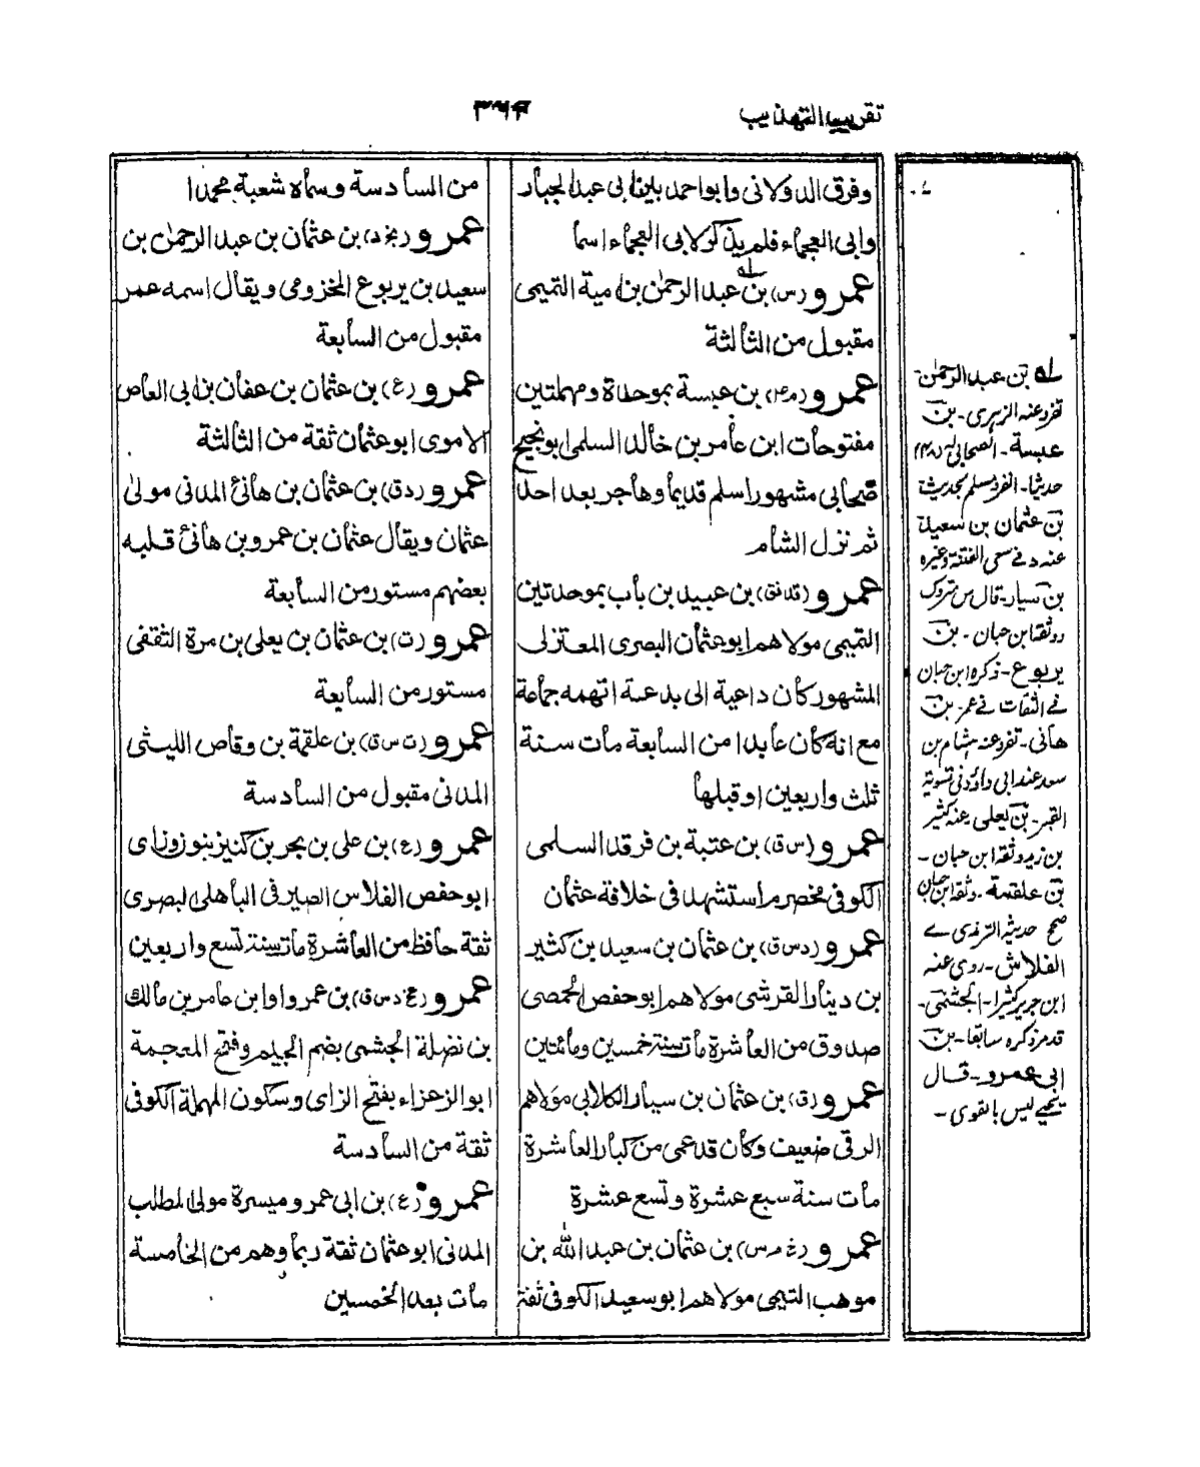 تقريب التهذيب
وفرق الدولابى وابو احمد بين ابى عبد الجبار
وابى العجماء فلم يذكر لابى العجماء اسما
عمرو (س) بن عبد الرحمٰن بن امية التميمى
مقبول من الثالثة
عمرو (م ٤) بن عبسة بموحدة ومهملتين
مفتوحات ابن عامر بن خالد السلمى ابو نجيح
صحابى مشهور اسلم قديما وهاجر بعد احد
ثم نزل الشام
عمرو (قد فق) بن عبيد بن باب بموحدتين
التميمى مولاهم ابو عثمان البصرى المعتزلى
المشهور كان داعية الى بدعة اتهمه جماعة
مع انه كان عابدا من السابعة مات سنة
ثلث واربعين او قبلها
عمرو (س ق) بن عتبة بن فرقد السلمى
الكوفى مخضرم استشهد فى خلافة عثمان
عمرو (د س ق) بن عثمان بن سعيد بن كثير
بن دينار القرشى مولاهم ابو حفص الحمصى
صدوق من العاشرة مات سنة خمسين ومائتين
عمرو (ق) بن عثمان بن سيار الكلابى مولاهم
الرقى ضعيف وكان قد عمى من كبار العاشرة
مات سنة سبع عشرة وتسع عشرة
عمرو (خ م س) بن عثمان بن عبد الله بن
موهب التيمى مولاهم ابو سعيد الكوفى ثقة
من السادسة وسماه شعبة محمدا
عمرو (بخ د) بن عثمان بن عبد الرحمٰن بن
سعيد بن يربوع المخزومى ويقال اسمه عمر
مقبول من السابعة
عمرو (ع) بن عثمان بن عفان بن ابى العاص
الاموى ابو عثمان ثقة من الثالثة
عمرو (د ق) بن عثمان بن هانئ المدنى مولى
عثمان ويقال عثمان بن عمرو بن هانئ قلبه
بعضهم مستور من السابعة
عمرو (ت) بن عثمان بن يعلى بن مرة الثقفى
مستور من السابعة
عمرو (ت س ق) بن علقمة بن وقاص الليثى
المدنى مقبول من السادسة
عمرو (ع) بن على بن بحر بن كنيز بنون وزاى
ابو حفص الفلاس الصيرفى الباهلى البصرى
ثقة حافظ من العاشرة مات سنة تسع واربعين
عمرو (عخ د س ق) بن عمرو او ابن عامر بن مالك
بن نضلة الجشمى بضم الجيم وفتح المعجمة
ابو الزعزاء بفتح الزاى وسكون المهملة الكوفى
ثقة من السادسة
عمرو (ع) بن ابى عمرو ميسرة مولى المطلب
المدنى ابو عثمان ثقة ربما وهم من الخامسة
مات بعد الخمسين
له بن عبد الرحمٰن
تفرد عنه الزهرى - بن
عبسة - الصحابى له
حديثا - انفرد مسلم بحديث
بن عثمان بن سعيد
عنه د فى سعى الفتنة وغيره
بن سيار - قال س متروك
ووثقه ابن حبان - بن
يربوع - ذكره ابن حبان
فى الثقات فى عمر بن
هانى - تفرد عنه هشام بن
سعد عند ابى داؤد فى تسوية
القبر - بن يعلى عنه كثير
بن زيد وثقه ابن حبان -
بن علقمة - وثقه ابن حبان
صحح حديثه الترمذى
الفلاس - روى عنه
ابن جرير كثيرا - الجشمى -
قد مر ذكره سابقا - بن
ابى عمرو - قال
يحيى ليس بالقوى -